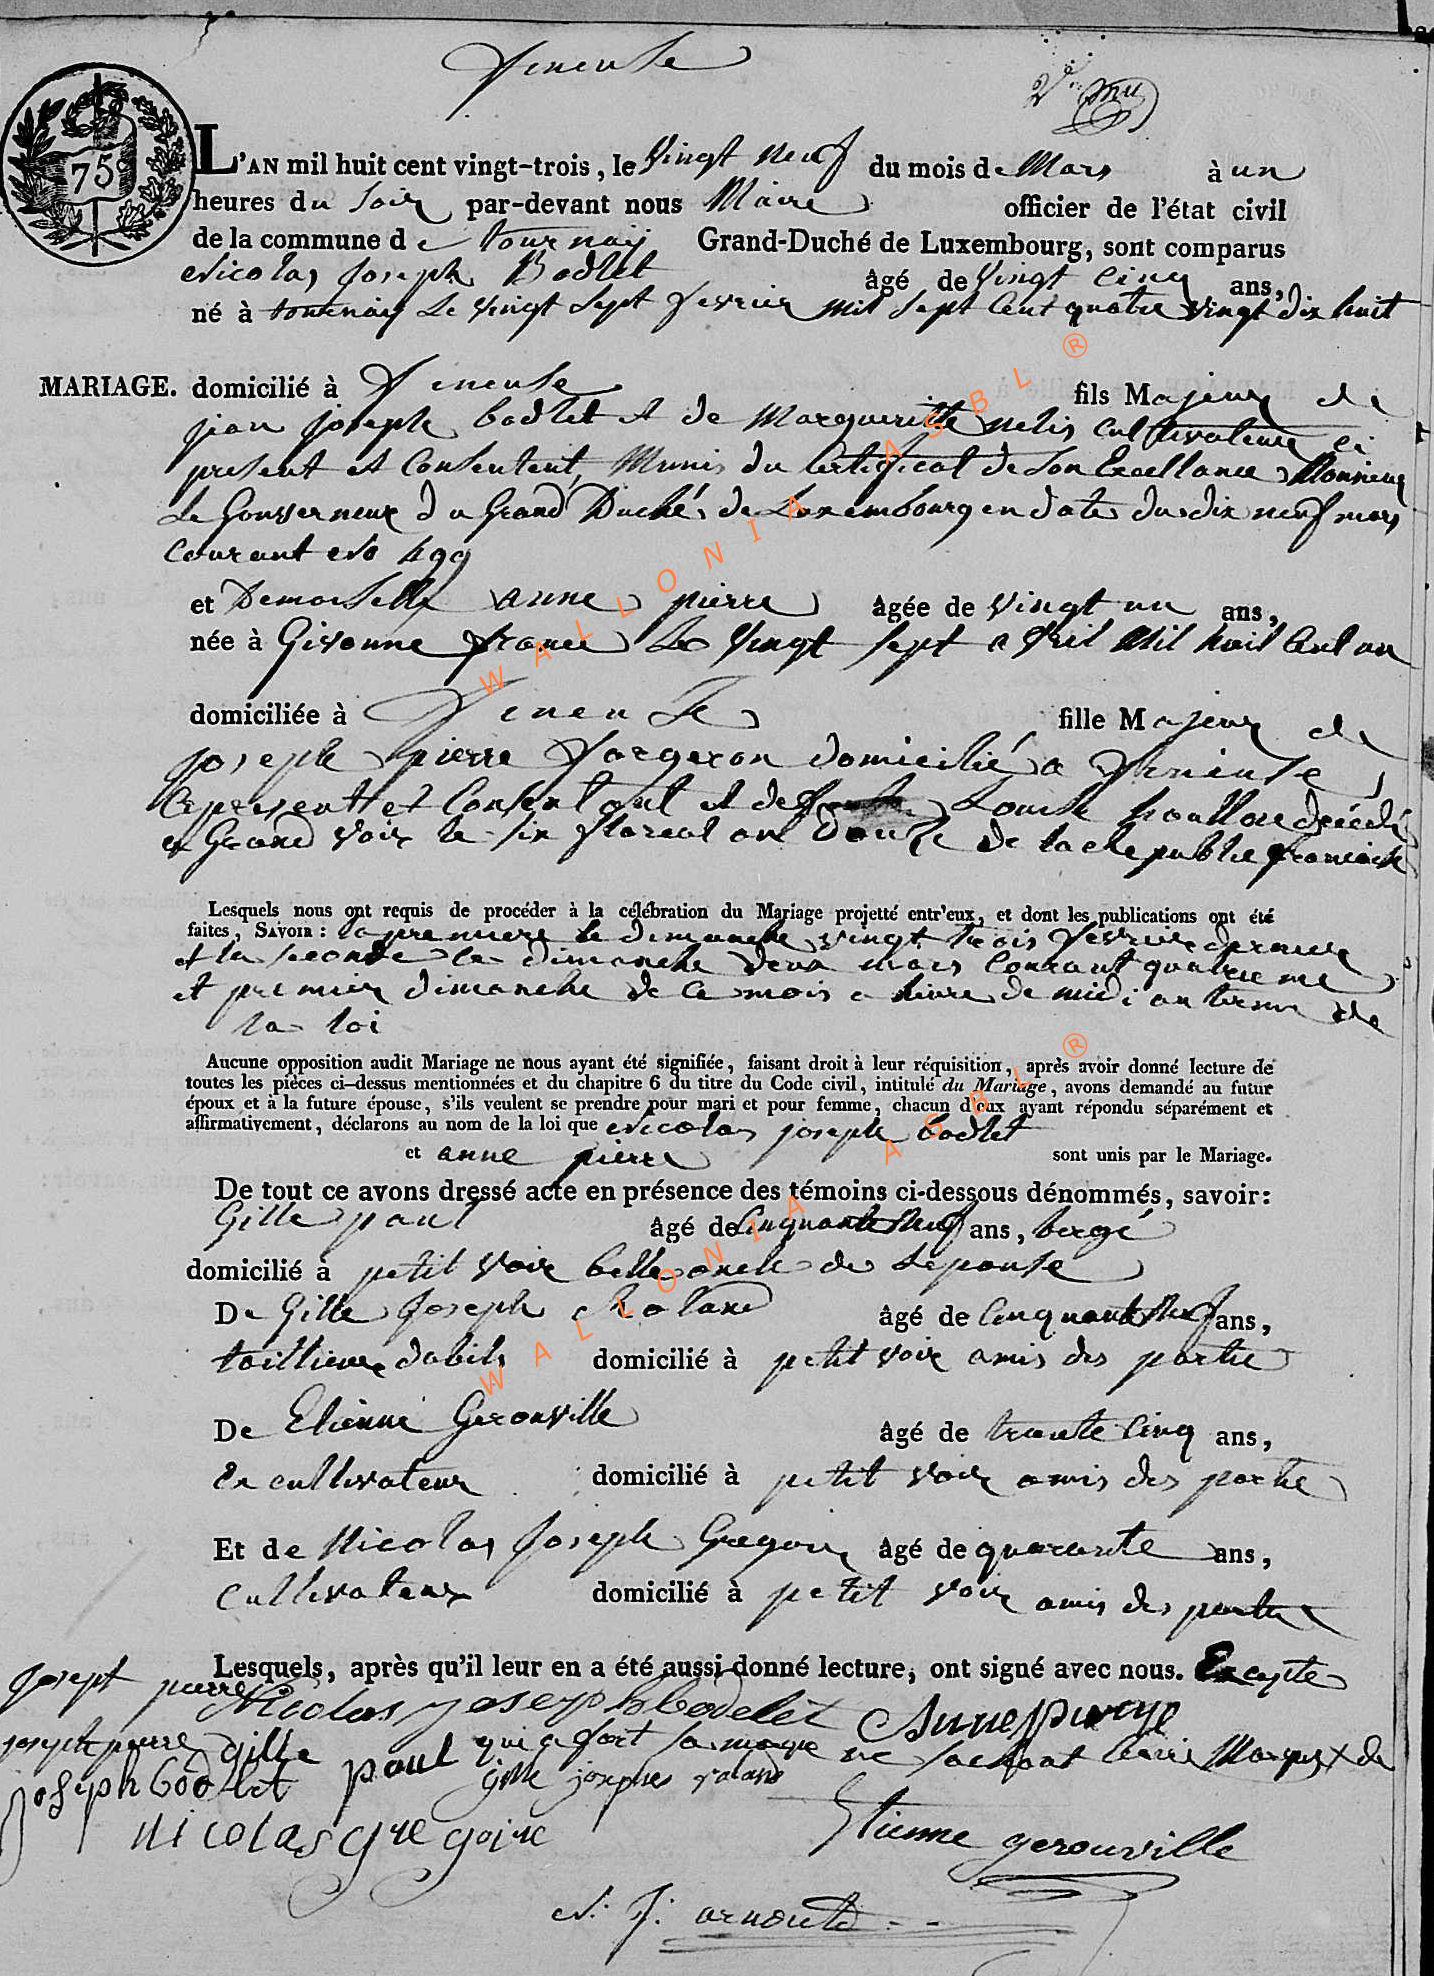 Vu
75
L'AN mil huit cent vingt-trois, le vingt neuf du mois de Mars à un
heures du soir par-devant nous Maire officier de l'état civil
de la commune de tournay Grand-Duché de Luxembourg, sont comparus
Nicolas Joseph Bodlet âgé de vingt cinq ans,
né à tournay Le vingt sept fevrier mil sept Cent quatre vingt dix huit
MARIAGE. domicilié à fils Majeur de
jean joseph bodlet et de Margueritte nelis cultivateur ci
present et Consentent, Munis du Certificat de Son Excellance Monsieur
Le Gouverneur du Grand Duché de Luxembourg en date du dix neuf mars
Courant No 499
et Demoiselle anne pierre âgée de vingt un ans,
née à Givonne france Le vingt sept avril Mil huit Cent un
domiciliée à fille Majeur de
joseph pierre forgeron domicilié a
Ci present et Consentant et de Louise décédé
a Grand voir le six floreal an Douze de la Republie francaise
Lesquels nous ont requis de procéder à la célébration du Mariage projetté entr'eux, et dont les publications ont été
faites, SAVOIR : la premiere le dimanche vingt trois fevrier dernier
et la seconde le dimanche deux mars Courant quatrieme
et premier dimanche de Ce mois a heure de midi au terme de
la loi
Aucune opposition audit Mariage ne nous ayant été signifiée, faisant droit à leur réquisition, après avoir donné lecture de
toutes les pièces ci-dessus mentionnées et du chapitre 6 du titre du Code civil, intitulé du Mariage, avons demandé au futur
époux et à la future épouse, s'ils veulent se prendre pour mari et pour femme, chacun d'eux ayant répondu séparément et
affirmativement, déclarons au nom de la loi que Nicolas joseph bodlet
et anne pierre sont unis par le Mariage.
De tout ce avons dressé acte en présence des témoins ci-dessous dénommés, savoir:
Gille paul âgé de Cinquante Neuf ans, bergé
domicilié à petit voir belle oncle de Lepouse
De Gille Joseph Roland âgé de Cinquante Neuf ans,
taillieur dabils domicilié à petit voir amis des partie
De Etienne Gerouville âgé de trente Cinq ans,
De cultivateur domicilié à petit voir amis des partie
Et de Nicolas Joseph Gregoire âgé de quarante ans,
Cultivateur domicilié à petit voir amis des partie
Lesquels, après qu'il leur en a été aussi donné lecture, ont signé avec nous. Excepte
josept pierre Nicolas joseph bodelet Anne pierre
joseph pierre gille paul qui a fait sa marque ne sachant Ecrire Marque X de
joseph bodlet gille josephe roland
Nicolas gregoire Etienne gerouville
N: J: arnould
WALLONIA ASBL ®
WALLONIA ASBL ®